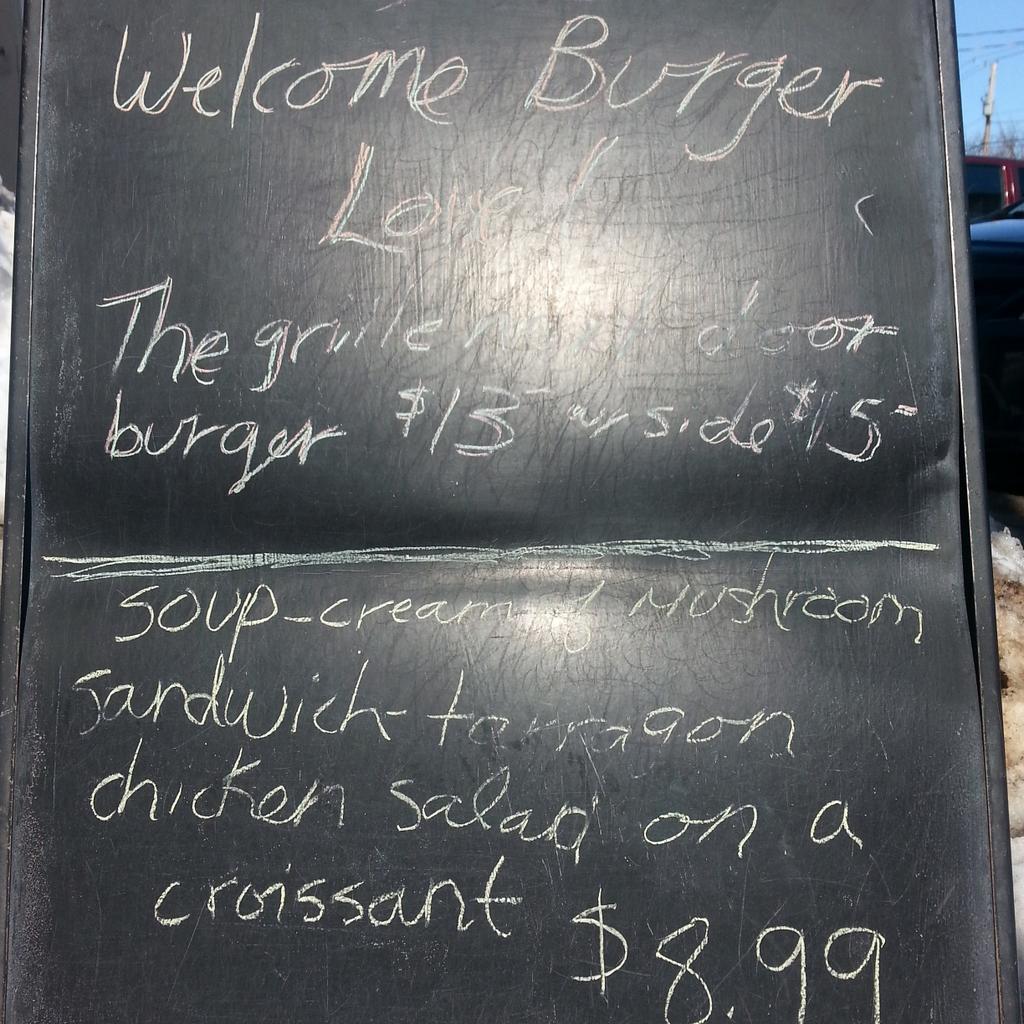 Welcome Burger
Love!
The grille next door
burger $13- w/ side $15-
soup-cream of Mushroom
sandwich-tarragon
chicken salad on a
croissant $8.99